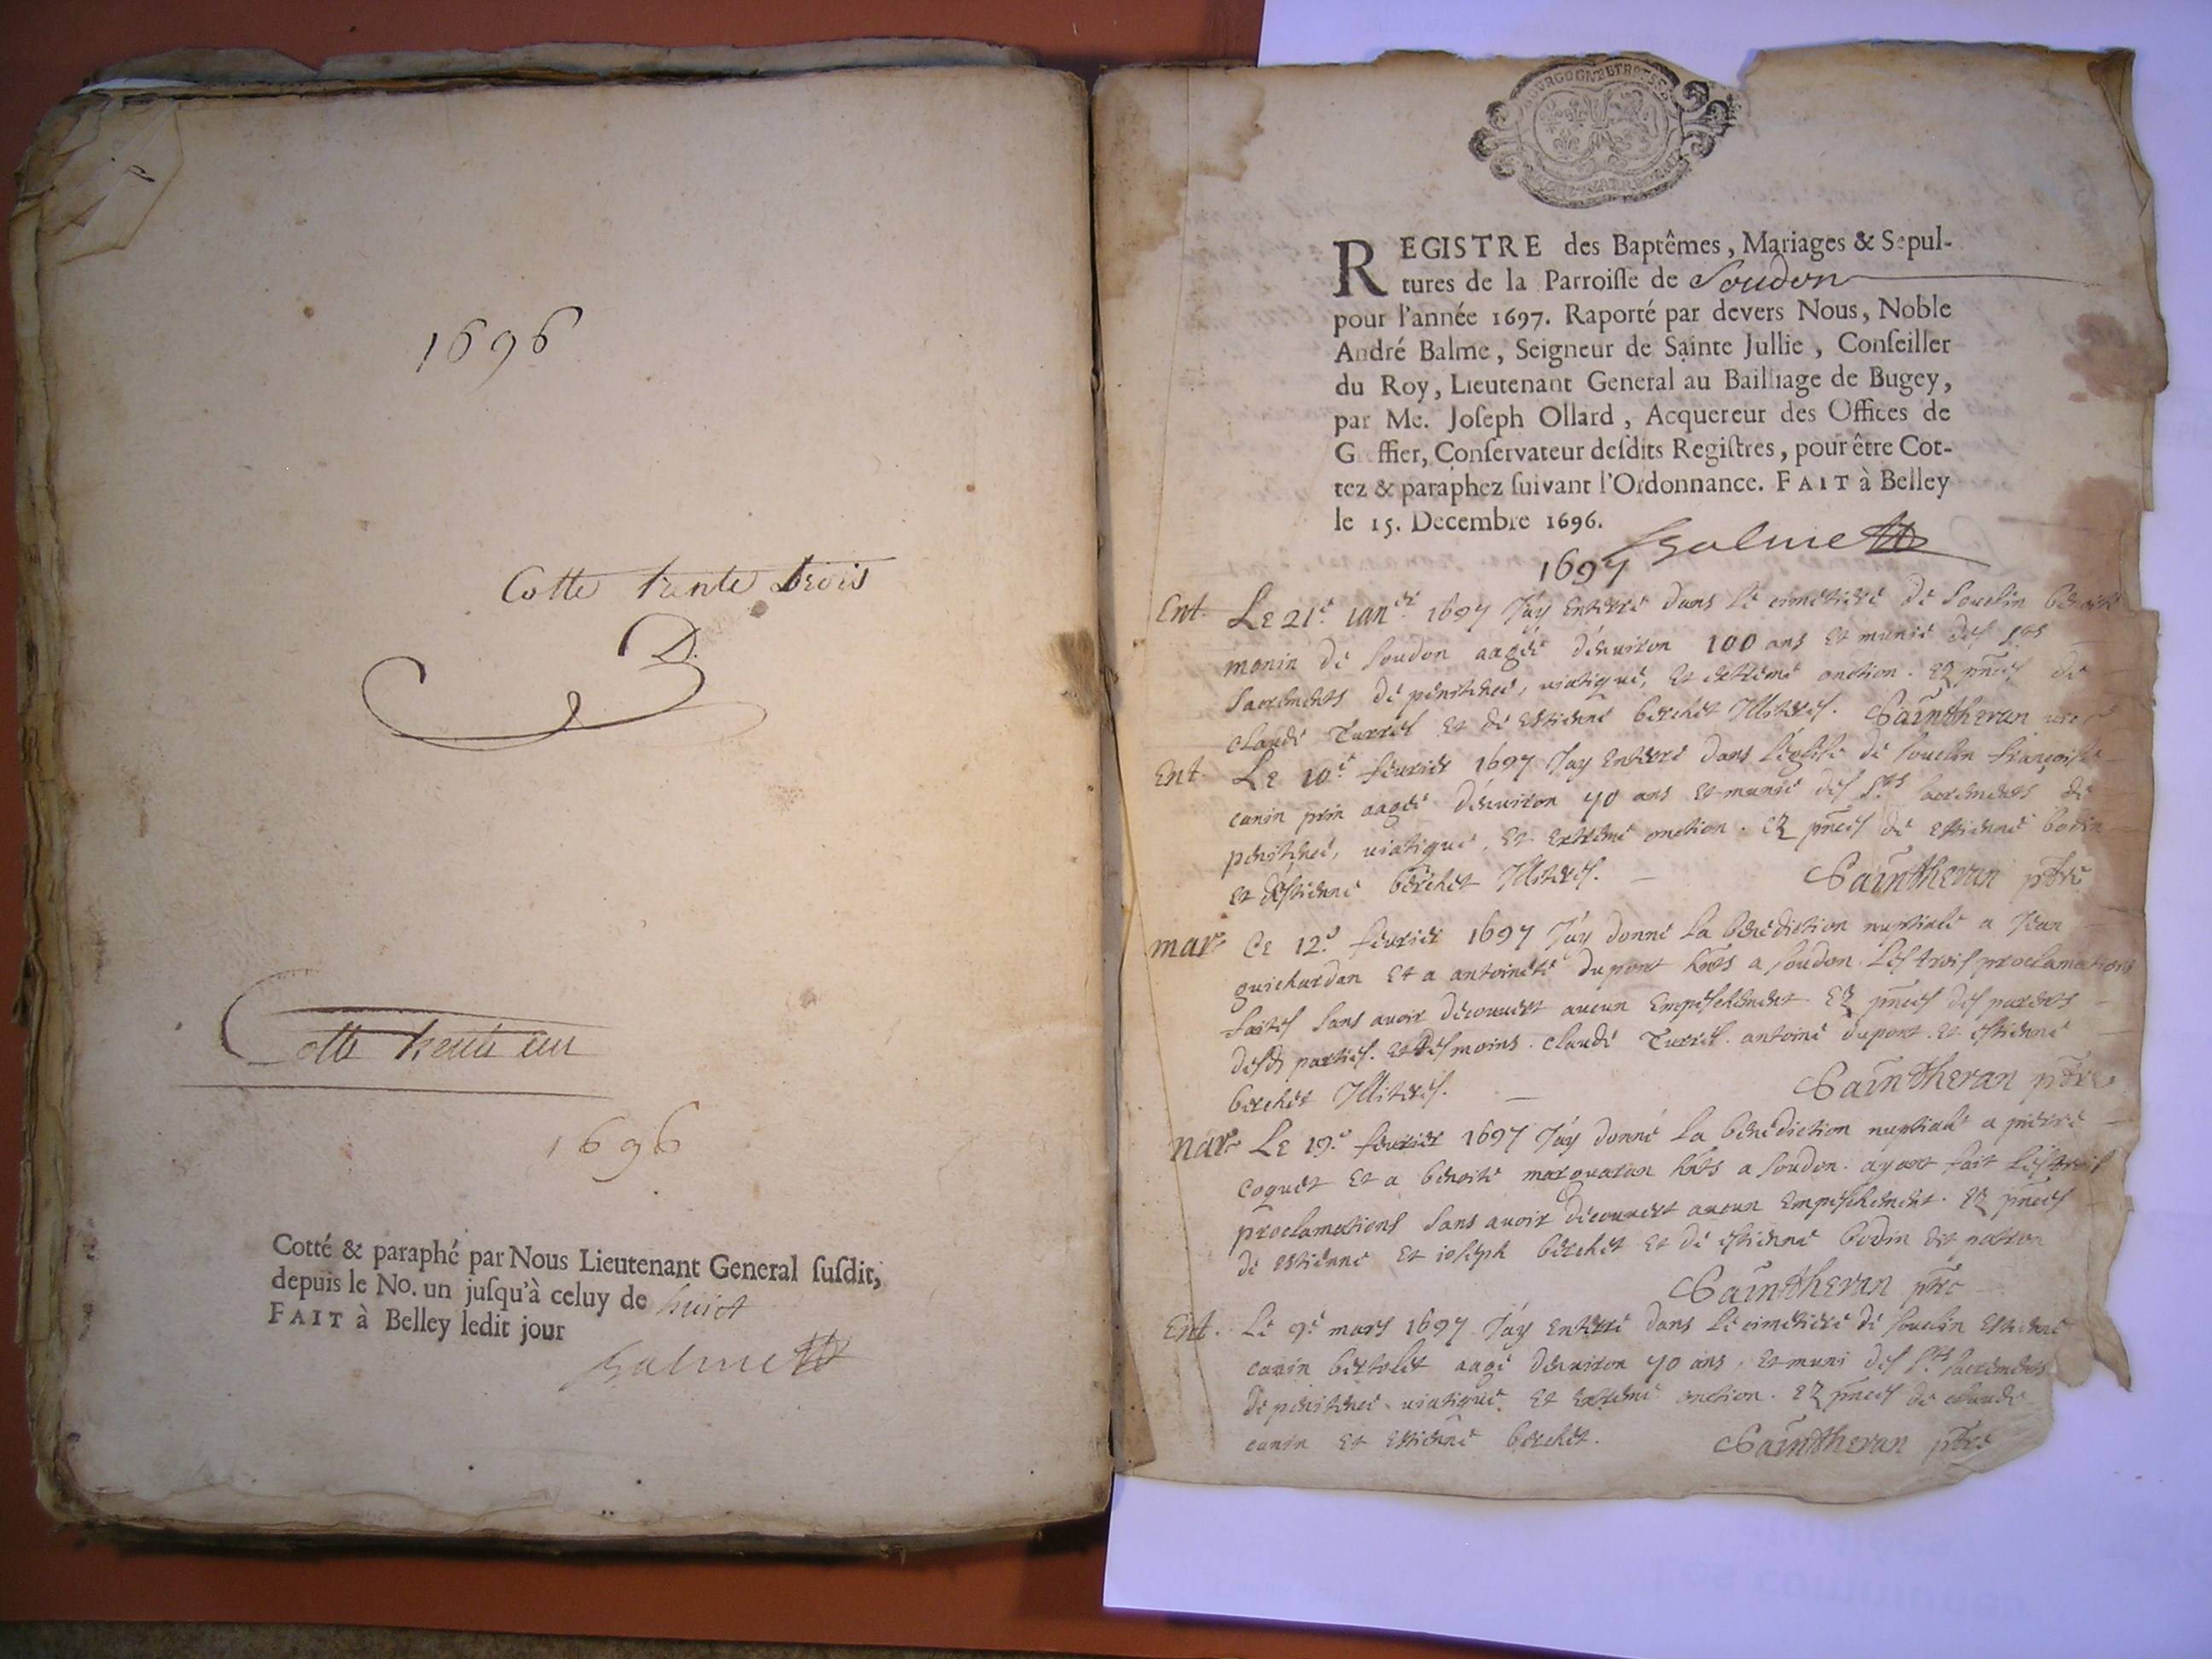 1696
Cotte trente trois
Cotte trente un
1696
Cotté & paraphé par Nous Lieutenant General ſuſdit,
depuis le No. un juſqu'à celuy de huict
FAIT à Belley ledit jour
Balme
BOURGOGNE ET BRESSE
REGISTRE des Baptêmes, Mariages & Sepul-
tures de la Parroiſſe de Soudon
pour l'année 1697. Raporté par devers Nous, Noble
André Balme, Seigneur de Sainte Jullie, Conſeiller
du Roy, Lieutenant General au Bailliage de Bugey,
par Me. Joſeph Ollard, Acquereur des Offices de
Greffier, Conſervateur deſdits Regiſtres, pour être Cot-
tez & paraphez ſuivant l'Ordonnance. FAIT à Belley
le 15. Decembre 1696.
Balme
1697
Ent. Le 21e ianer 1697 J'ay enterré dans le cimetiere de Souclin benoite
monin de Soudon aagée d'enuiron 100 ans et munie des Sts
Sacrements de penitence, uiatique, et extreme onction. Ez pnces de
claude Turrel et de estienne berchet Illiterés. Saintheran
Ent. Le 10e feurier 1697 J'ay enterré dans l'eglise de Souclin françoise
canin prin aagée d'enuiron 40 ans et munie des Sts sacrements de
penitence, uiatique, et extreme onction. ez pnces de estienne bodin
et d'estienne berchet Illiterés. Saintheran ptre
mar. Ce 12e feurier 1697 J'ay donné la benediction nuptiale a Jean
guichardan et a antoinete dupont hnts a Soudon. Les trois proclamations
faites sans auoir découuert aucun empeschement ez pnces des parents
desds parties. et tesmoins. claude Turrel. antoine dupont. et estienne
berchet Illiterés. Saintheran ptre
mar. Le 19e feurier 1697 J'ay donné la benediction nuptiale a pierre
coquet et a benoite marguaran hnts a Soudon. ayant fait les trois
proclamations sans auoir découuert aucun empeschement. ez pnces
de estienne et ioseph berchet et de estienne bodin dit patron
Saintheran ptre
Ent. Le 9e mars 1697 J'ay enterré dans le cimetiere de Souclin estienne
canin bertolet aagé d'enuiron 40 ans, et muni des Sts sacrements
de penitence uiatique et extreme onction. ez pnces de claude
canin et estienne berchet. Saintheran ptre